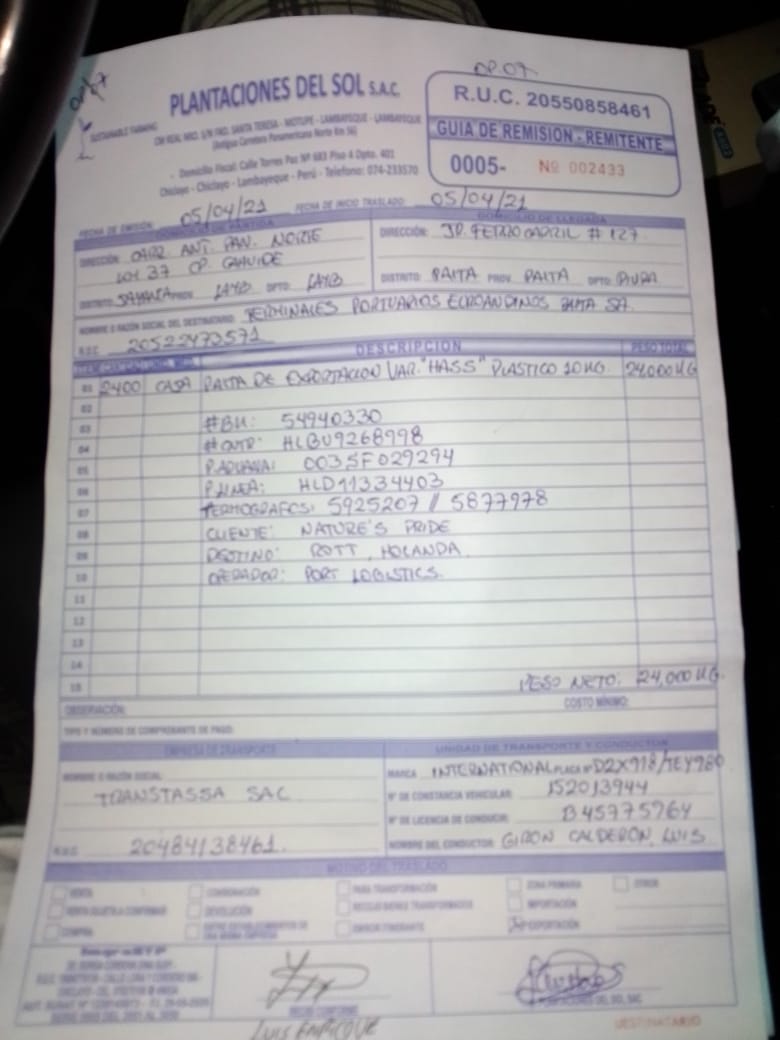 OP.07
OP.07
PLANTACIONES DEL SOL S.A.C.
SUSTAINABLE FARMING
CM REAL NRO. S/N FND. SANTA TERESA - MOTUPE - LAMBAYEQUE - LAMBAYEQUE
(Antigua Carretera Panamericana Norte Km 36)
Domicilio Fiscal: Calle Torres Paz Nº 683 Piso 4 Dpto. 401
Chiclayo - Chiclayo - Lambayeque - Perú - Telefono: 074-233570
R.U.C. 20550858461
GUIA DE REMISION - REMITENTE
0005- Nº 002433
FECHA DE EMISIÓN: 05/04/21 FECHA DE INICIO TRASLADO: 05/04/21
DOMICILIO DE PARTIDA
DIRECCIÓN: CARR. ANT. PAN. NORTE
37 CP. CAHUIDE
DISTRITO: PROV. LAMB DPTO: LAMB
DOMICILIO DE LLEGADA
DIRECCIÓN: JR. FERROCARRIL # 127
DISTRITO: PAITA PROV. PAITA DPTO: PIURA
NOMBRE O RAZÓN SOCIAL DEL DESTINATARIO: TERMINALES PORTUARIOS EUROANDINOS PAITA SA.
R.U.C. 20522473571
DESCRIPCION PESO TOTAL
01 2400 CAJA PALTA DE EXPORTACION VAR. "HASS" PLASTICO 10 KG. 24,000 KG
02
03 #BK: 54940330
04 # CNTR: HLBU9268998
05 P. ADUANA: 0035F029294
06 P. LINEA: HLD11334403
07 TERMOGRAFOS: 5925207 // 5877978
08 CLIENTE: NATURE'S PRIDE
09 DESTINO: ROTT, HOLANDA
10 OPERADOR: PORT LOGISTICS.
11
12
13
14
15 PESO NETO: 24,000 KG.
OBSERVACIÓN: COSTO MÍNIMO:
TIPO Y NÚMERO DE COMPROBANTE DE PAGO:
EMPRESA DE TRANSPORTE
NOMBRE O RAZÓN SOCIAL:
TRANSTASSA SAC
R.U.C. 20484138461.
UNIDAD DE TRANSPORTE Y CONDUCTOR
MARCA INTERNATIONAL PLACA Nº D2X918/TEY980
Nº DE CONSTANCIA VEHICULAR: 152013944
Nº DE LICENCIA DE CONDUCIR: B45775764
NOMBRE DEL CONDUCTOR: GIRON CALDERON, LUIS
MOTIVO DEL TRASLADO
VENTA CONSIGNACIÓN PARA TRANSFORMACIÓN ZONA PRIMARIA OTROS
VENTA SUJETA A CONFIRMAR DEVOLUCIÓN RECOJO BIENES TRANSFORMADOS IMPORTACIÓN
COMPRA ENTRE ESTABLECIMIENTOS DE UNA MISMA EMPRESA EMISOR ITINERANTE EXPORTACIÓN
RECIBI CONFORME
PLANTACIONES DEL SOL SAC
LUIS ENRIQUE
DESTINATARIO